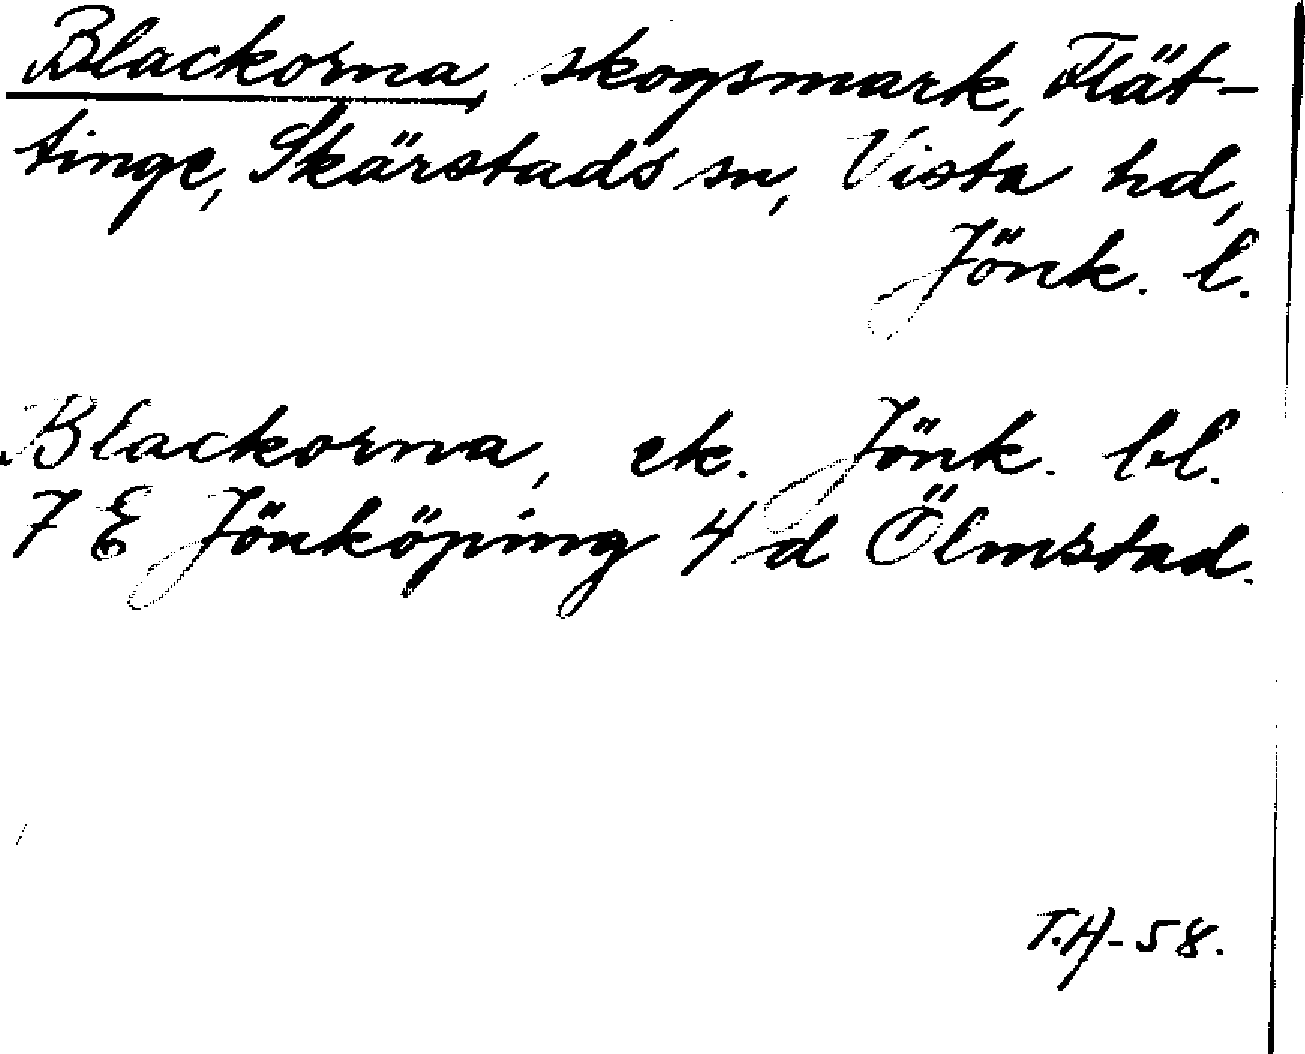 Blackorna, skogsmark, Flät-
tinge, Skärstads sn, Vista hd,
Jönk. l.
Blackorna, ek. Jönk. bl.
7 E Jönköping 4 d Ölmstad.
T.H-58.